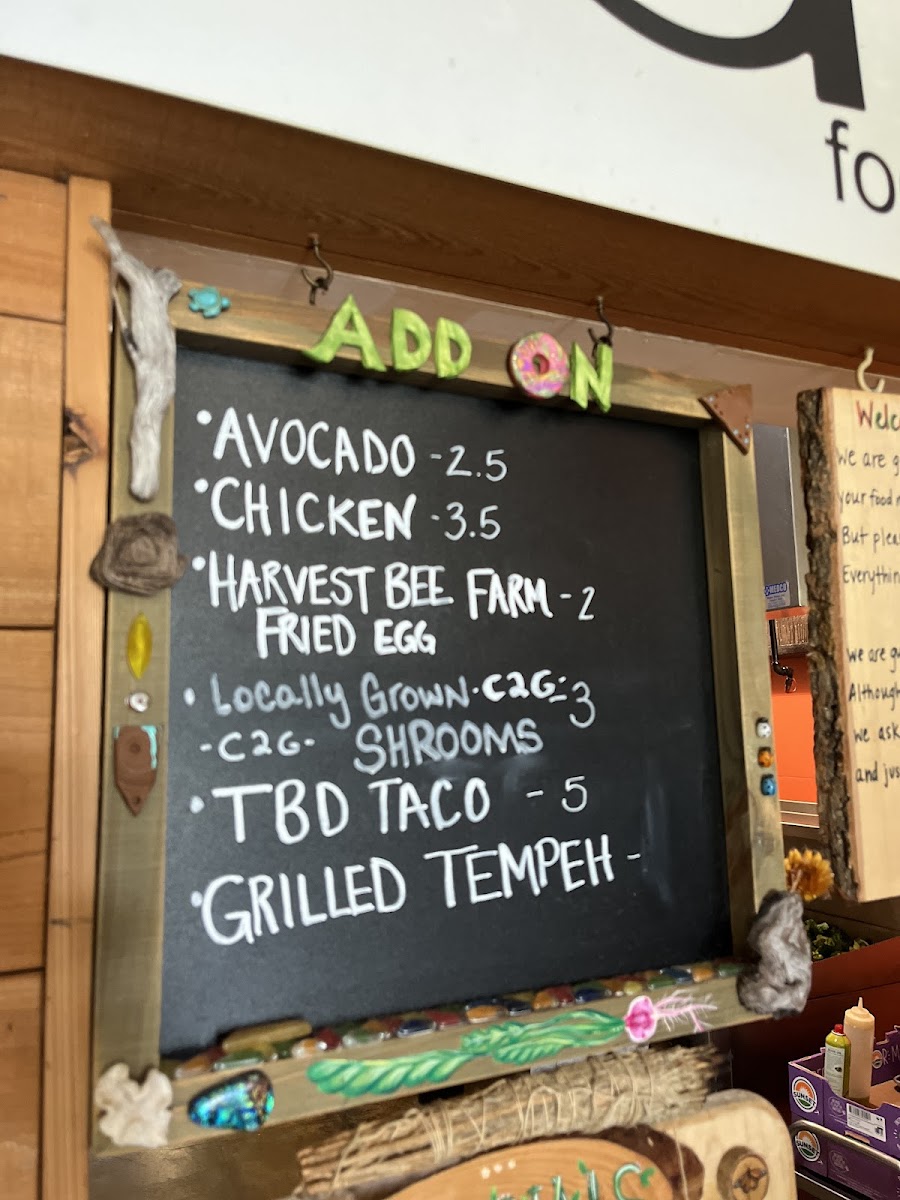 fo
ADD ON
• AVOCADO - 2.5
• CHICKEN - 3.5
• HARVEST BEE FARM - 2
FRIED EGG
• Locally Grown · C2G - 3
- C2G - SHROOMS
• TBD TACO - 5
• GRILLED TEMPEH -
Welc
We are g
your food
But plea
Everythin
we are gu
Although
we ask
and jus